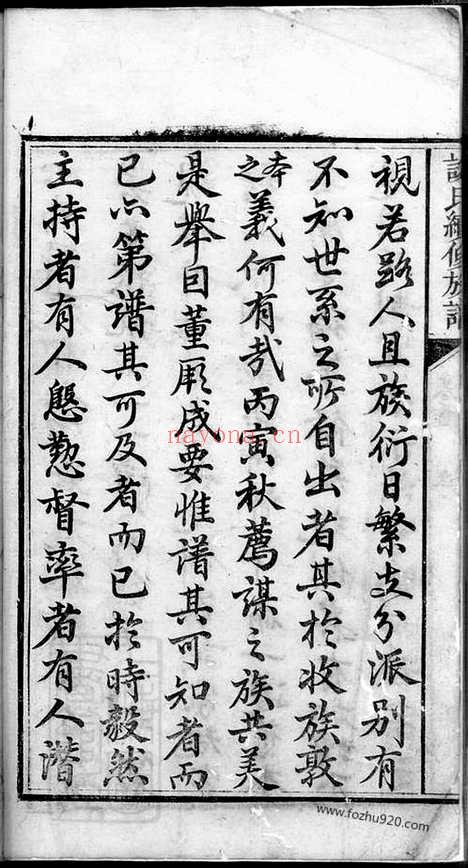 視若路人且族衍日繁支分派别有
不知世系之所自出者其於收族敦
本之義何有哉丙寅秋薦謀之族共美
是舉因董厥成要惟譜其可知者而
已亦第譜其可及者而已於時毅然
主持者有人慇懃督率者有人潛
氏續修族譜
nayona.cn
www.fozhu920.com